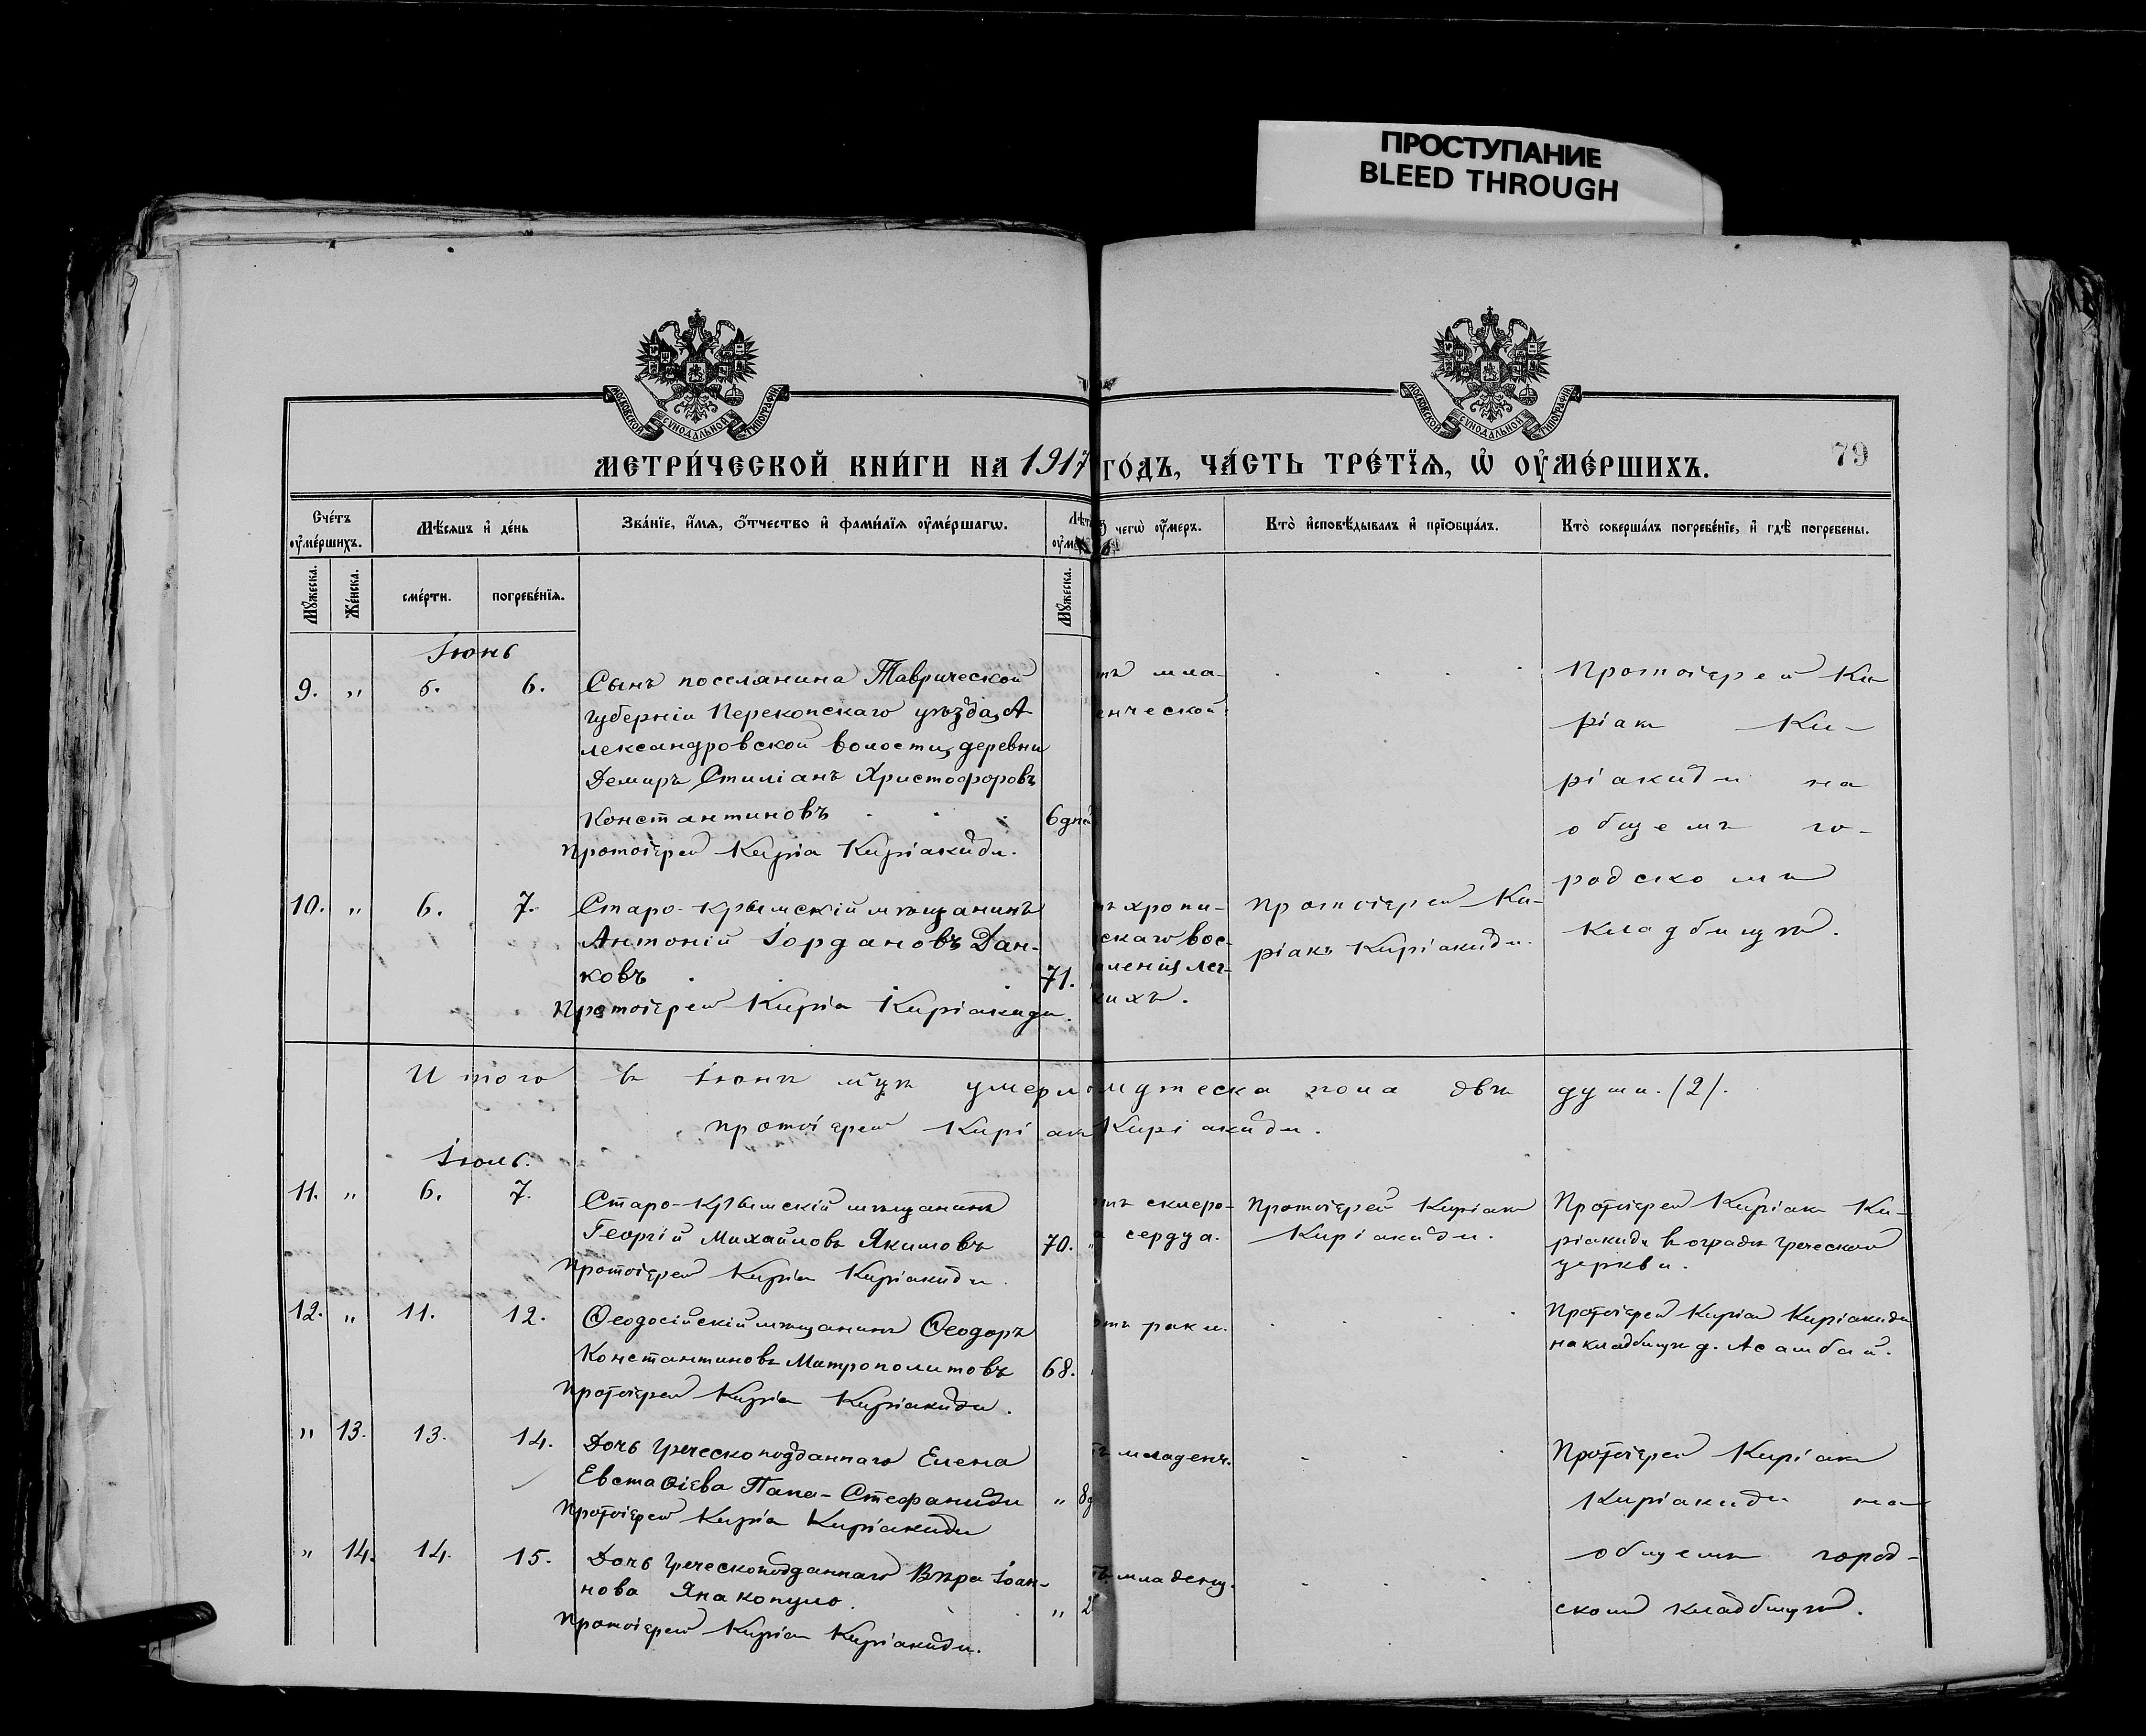 ПРОСТУПАНИЕ
BLEED THROUGH
МОСКОВСКОЙ СУНОДАЛЬНОЙ ТИПОГРАФІИ
МОСКОВСКОЙ СУНОДАЛЬНОЙ ТИПОГРАФІИ
МЕТРИ́ЧЕСКОЙ КНИ́ГИ НА 1917 ГО́ДЪ, ЧА́СТЬ ТРЕ́ТЇѦ, Ѡ҆ ОУ҆МЕ́РШИХЪ.
79
Сче́тъ оу҆ме́ршихъ.
Мѣ́сѧцъ и҆ де́нь
Зва́нїе, и҆́мѧ, ѻ҆́тчество и҆ фами́лїѧ оу҆ме́ршагѡ.
Лѣт
оу҆м
ѿ чегѡ̀ оу҆́меръ.
Кто̀ и҆сповѣ́дывалъ и҆ прїѡбща́лъ.
Кто̀ соверша́лъ погребе́нїе, и҆ гдѣ̀ погребены.
Мꙋ́жеска.
Же́нска.
сме́рти.
погребе́нїѧ.
Мꙋ́жеска.
Іюнь
9. " 5. 6.
Сынъ поселянина Таврической
губерніи Перекопскаго уѣзда, А-
лександровской волости, деревни
Демиръ Стиліанъ Христофоровъ
Константиновъ
6 дней
Протоіерей Киріа Киріакиди.
тъ мла-
енческой
Протоіерей Ки
ріак Ки-
ріакиди на
общемъ го-
родскомъ
кладбищѣ.
10. " 6. 7.
Старо-крымскій мѣщанинъ
Антоній Іордановъ Дан-
ковъ
71.
Протоіерей Киріа Киріакиди.
ъ хрони-
скаго вос-
аленія лег-
кихъ.
Протоіерей Ки-
ріакъ Киріакиди.
Итого въ Іюнѣ м-цѣ умерло мужеска пола двѣ души. (2).
протоіерей Киріак Киріакиди.
Іюль.
11. " 6. 7.
Старо-Крымскій мѣщанинъ
Георгій Михайловъ Якимовъ
70. "
Протоіерей Киріа Киріакиди.
тъ склеро-
а сердца.
Протоіерей Киріак
Киріакиди.
Протоіерей Киріак Ки-
ріакиди въ оградѣ греческой
церкви.
12. " 11. 12.
Ѳеодосійскій мѣщанинъ Ѳеодоръ
Константиновъ Митрополитовъ
68.
Протоіерей Киріа Киріакиди.
отъ рака.
Протоіерей Киріак Киріакиди
на кладбищѣ д. Асамбай.
" 13. 13. 14.
Дочь греческоподданнаго Елена
Евстаѳіева Папа-Стефаниди
" 8д
Протоіерей Киріа Киріакиди
ъ младенч.
Протоіерей Киріак
Киріакиди на
общемъ город-
скомъ кладбищѣ.
" 14. 14. 15.
Дочь греческоподданнаго Вѣра Іоан-
нова Янакопуло.
" 2
Протоіерей Киріа Киріакиди.
ъ младенч.